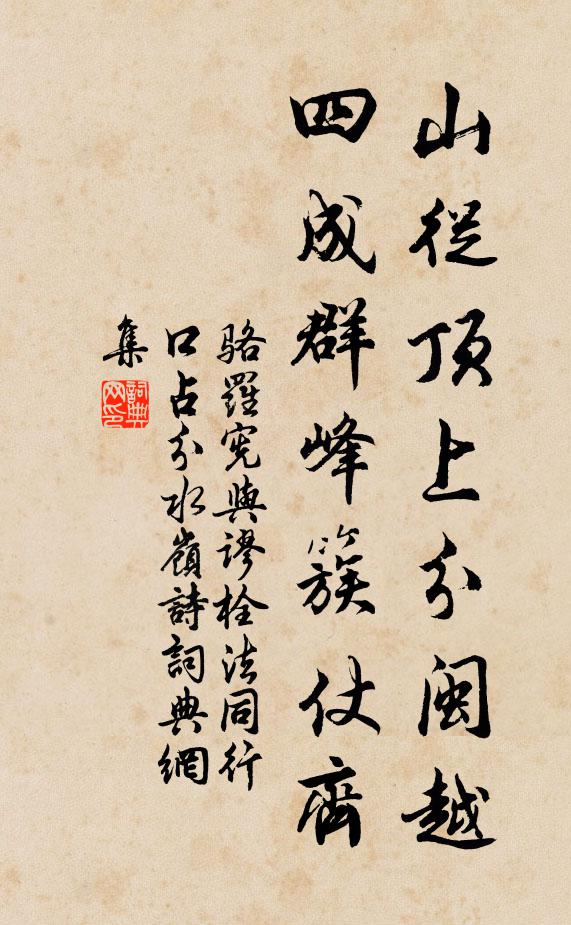 山從頂上分閩越
四成群峰簇仗齊
駱羅憲與謬栓法同行
口占分水嶺詩詞典網
集
詞典網印